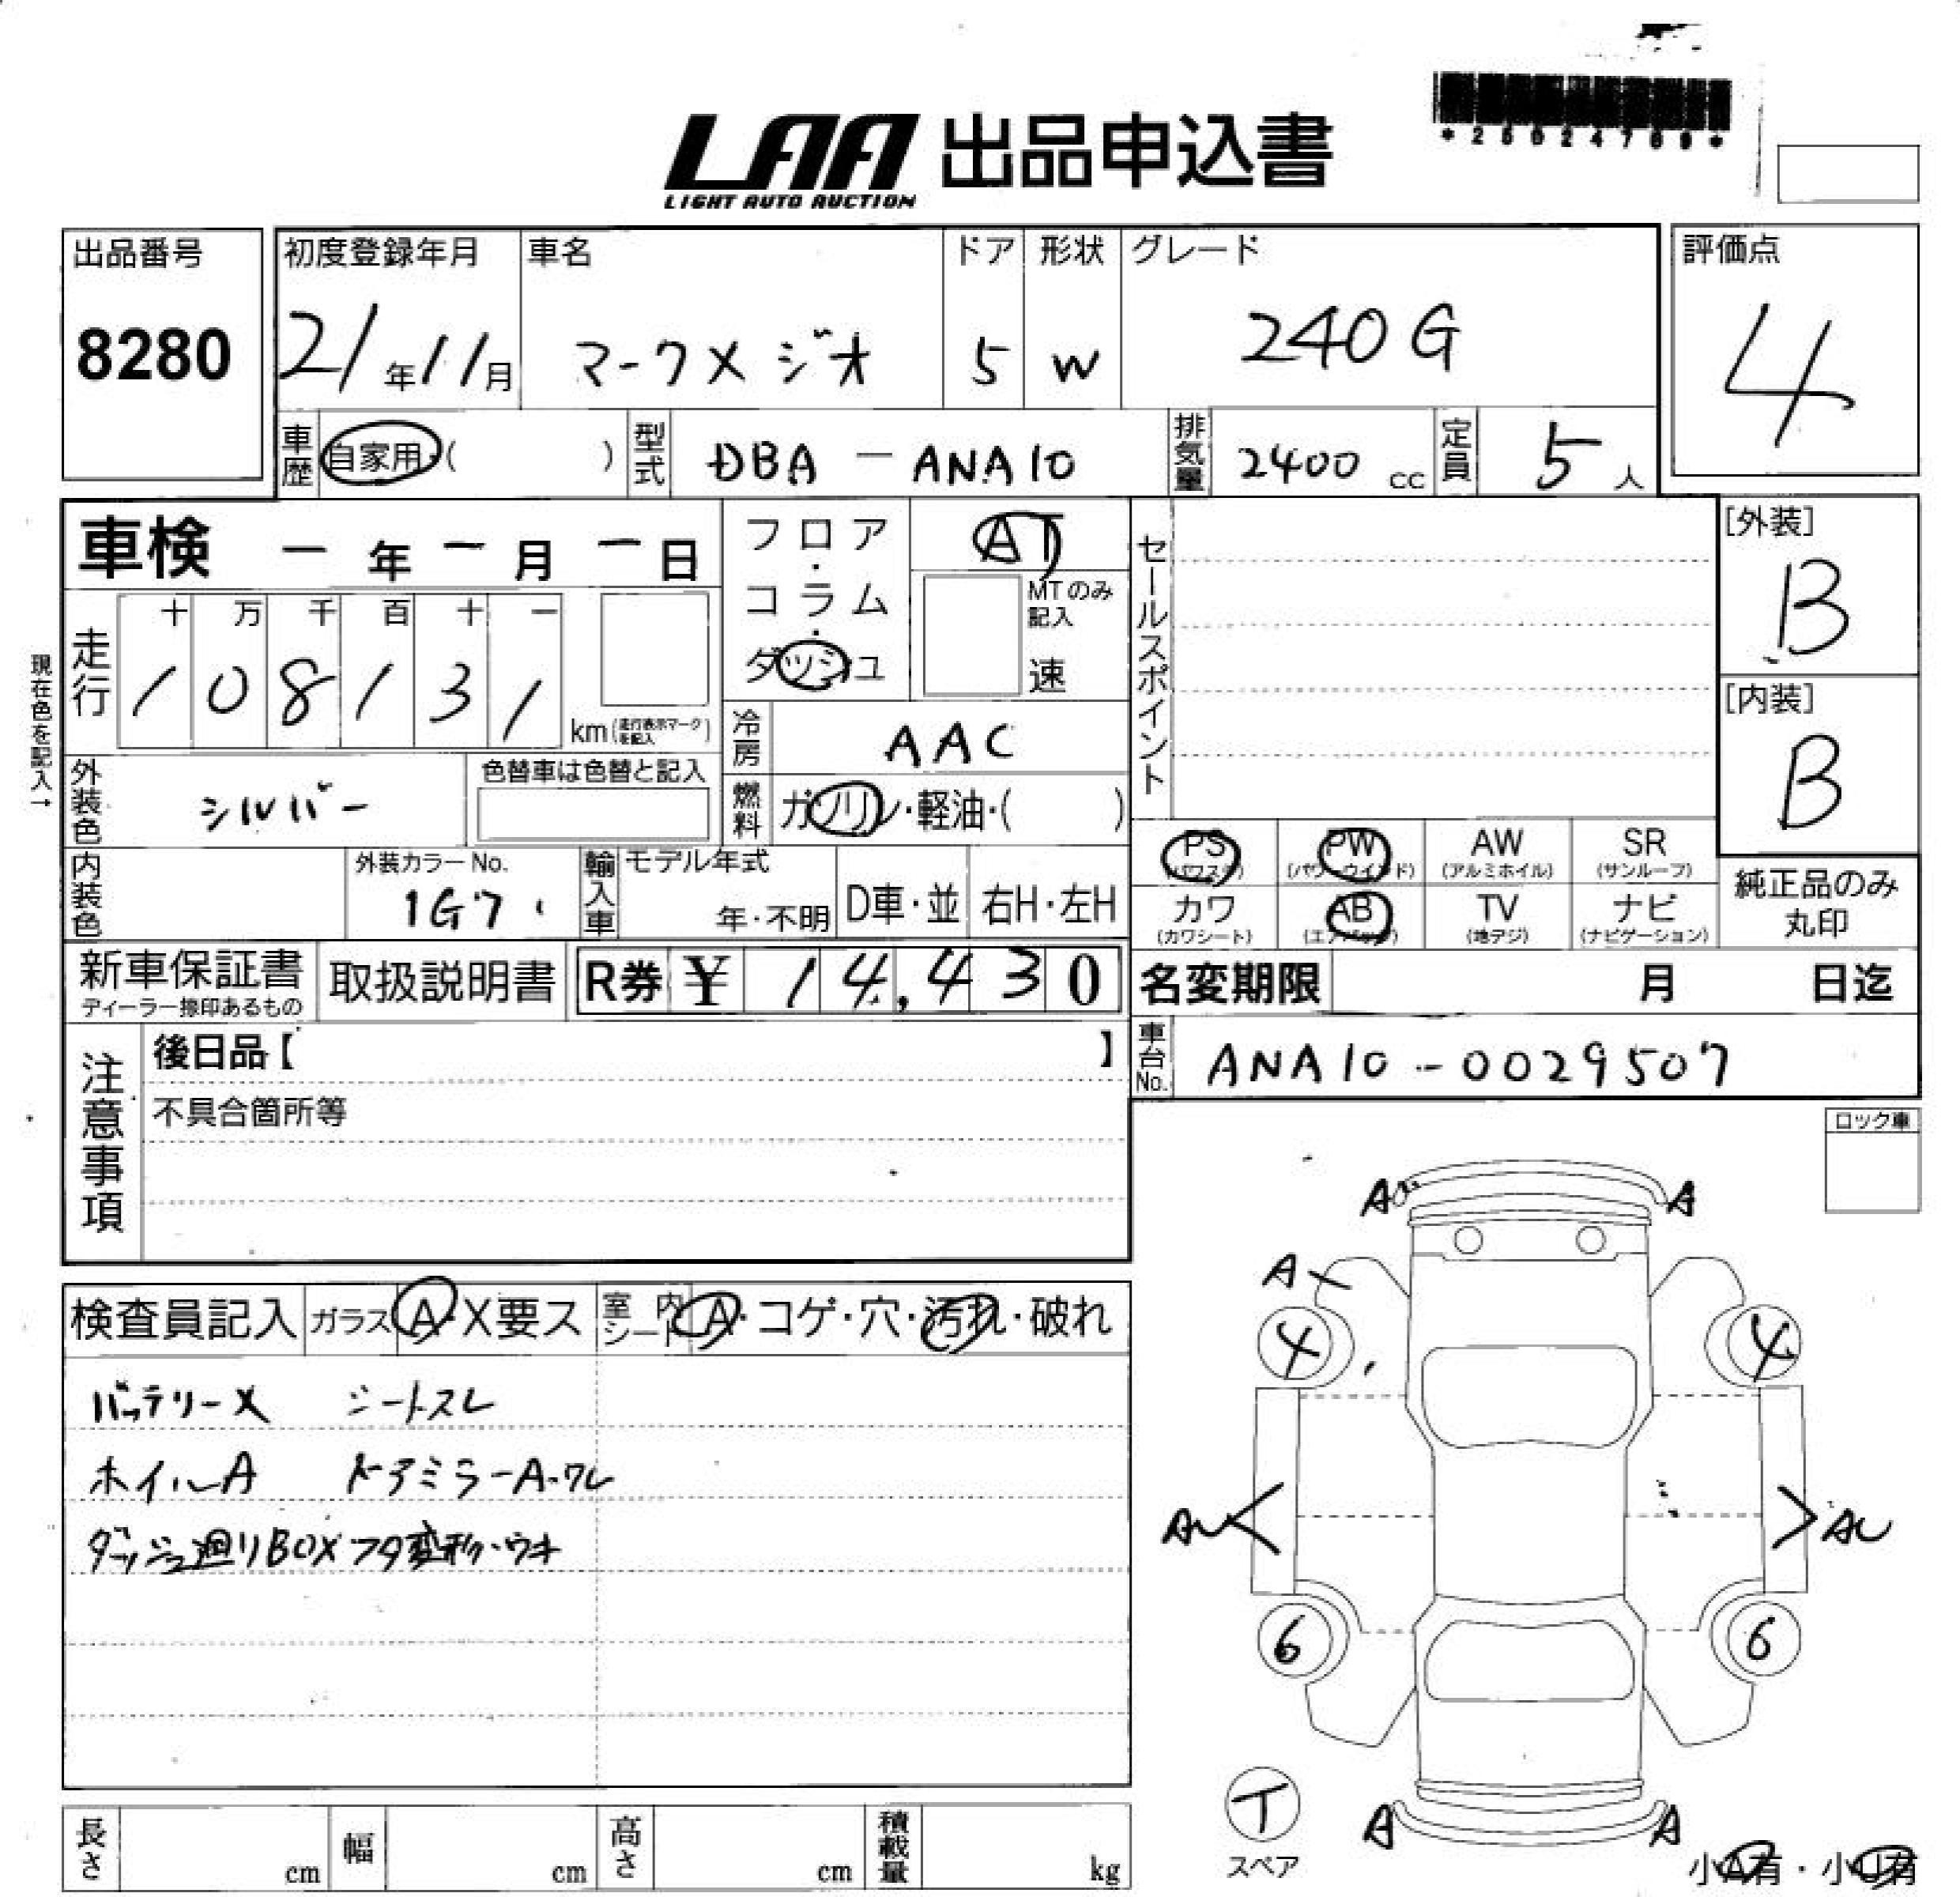 *25024789*
LAA 出品申込書
LIGHT AUTO AUCTION
出品番号 初度登録年月 車名 ドア 形状 グレード 評価点
8280 21年11月 マークXジオ 5 W 240G 4
車歴 自家用 ( ) 型式 DBA-ANA10 排気量 2400 cc 定員 5人
車検 ー年ー月ー日
フロア・コラム・ダッシュ AT
MTのみ記入 速
セールスポイント
[外装]
B
[内装]
B
現在色を記入→
走行 十 万 千 百 十 一
1 0 8 1 3 1 km (走行表示マークを記入)
冷房 AAC
外装色 シルバー 色替車は色替と記入
燃料 ガソリン・軽油・( )
内装色 外装カラーNo. 1G7
輸入車 モデル年式 年・不明 D車・並 右H・左H
PS (パワステ) PW (パワーウインド) AW (アルミホイル) SR (サンルーフ)
カワ (カワシート) AB (エアバッグ) TV (地デジ) ナビ (ナビゲーション)
純正品のみ
丸印
新車保証書 取扱説明書 R券 ¥ 14,430
ディーラー捺印あるもの
名変期限 月 日迄
車台No. ANA10-0029507
注意事項
後日品【 】
不具合箇所等
ロック車
検査員記入 ガラス A・X要ス 室内シート A・コゲ・穴・汚れ・破れ
バッテリーX シートスレ
ホイルA ドアミラーA・ワレ
ダッシュ廻りBOXフタ変形・ウキ
A A
A
4 4
AU AU
6 6
T
スペア
A A
小A有・小U有
長さ cm 幅 cm 高さ cm 積載量 kg